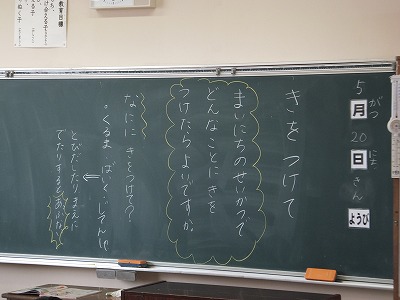 5月20日きんようび
がつ
にち
きをつけて
まいにちのせいかつで
どんなことにきを
つけたらよいですか。
なにに きをつけて?
。くるま・ばいく・じてんしゃ
⇐
とびだしたり まえに
でたりすると あぶない
教育目標